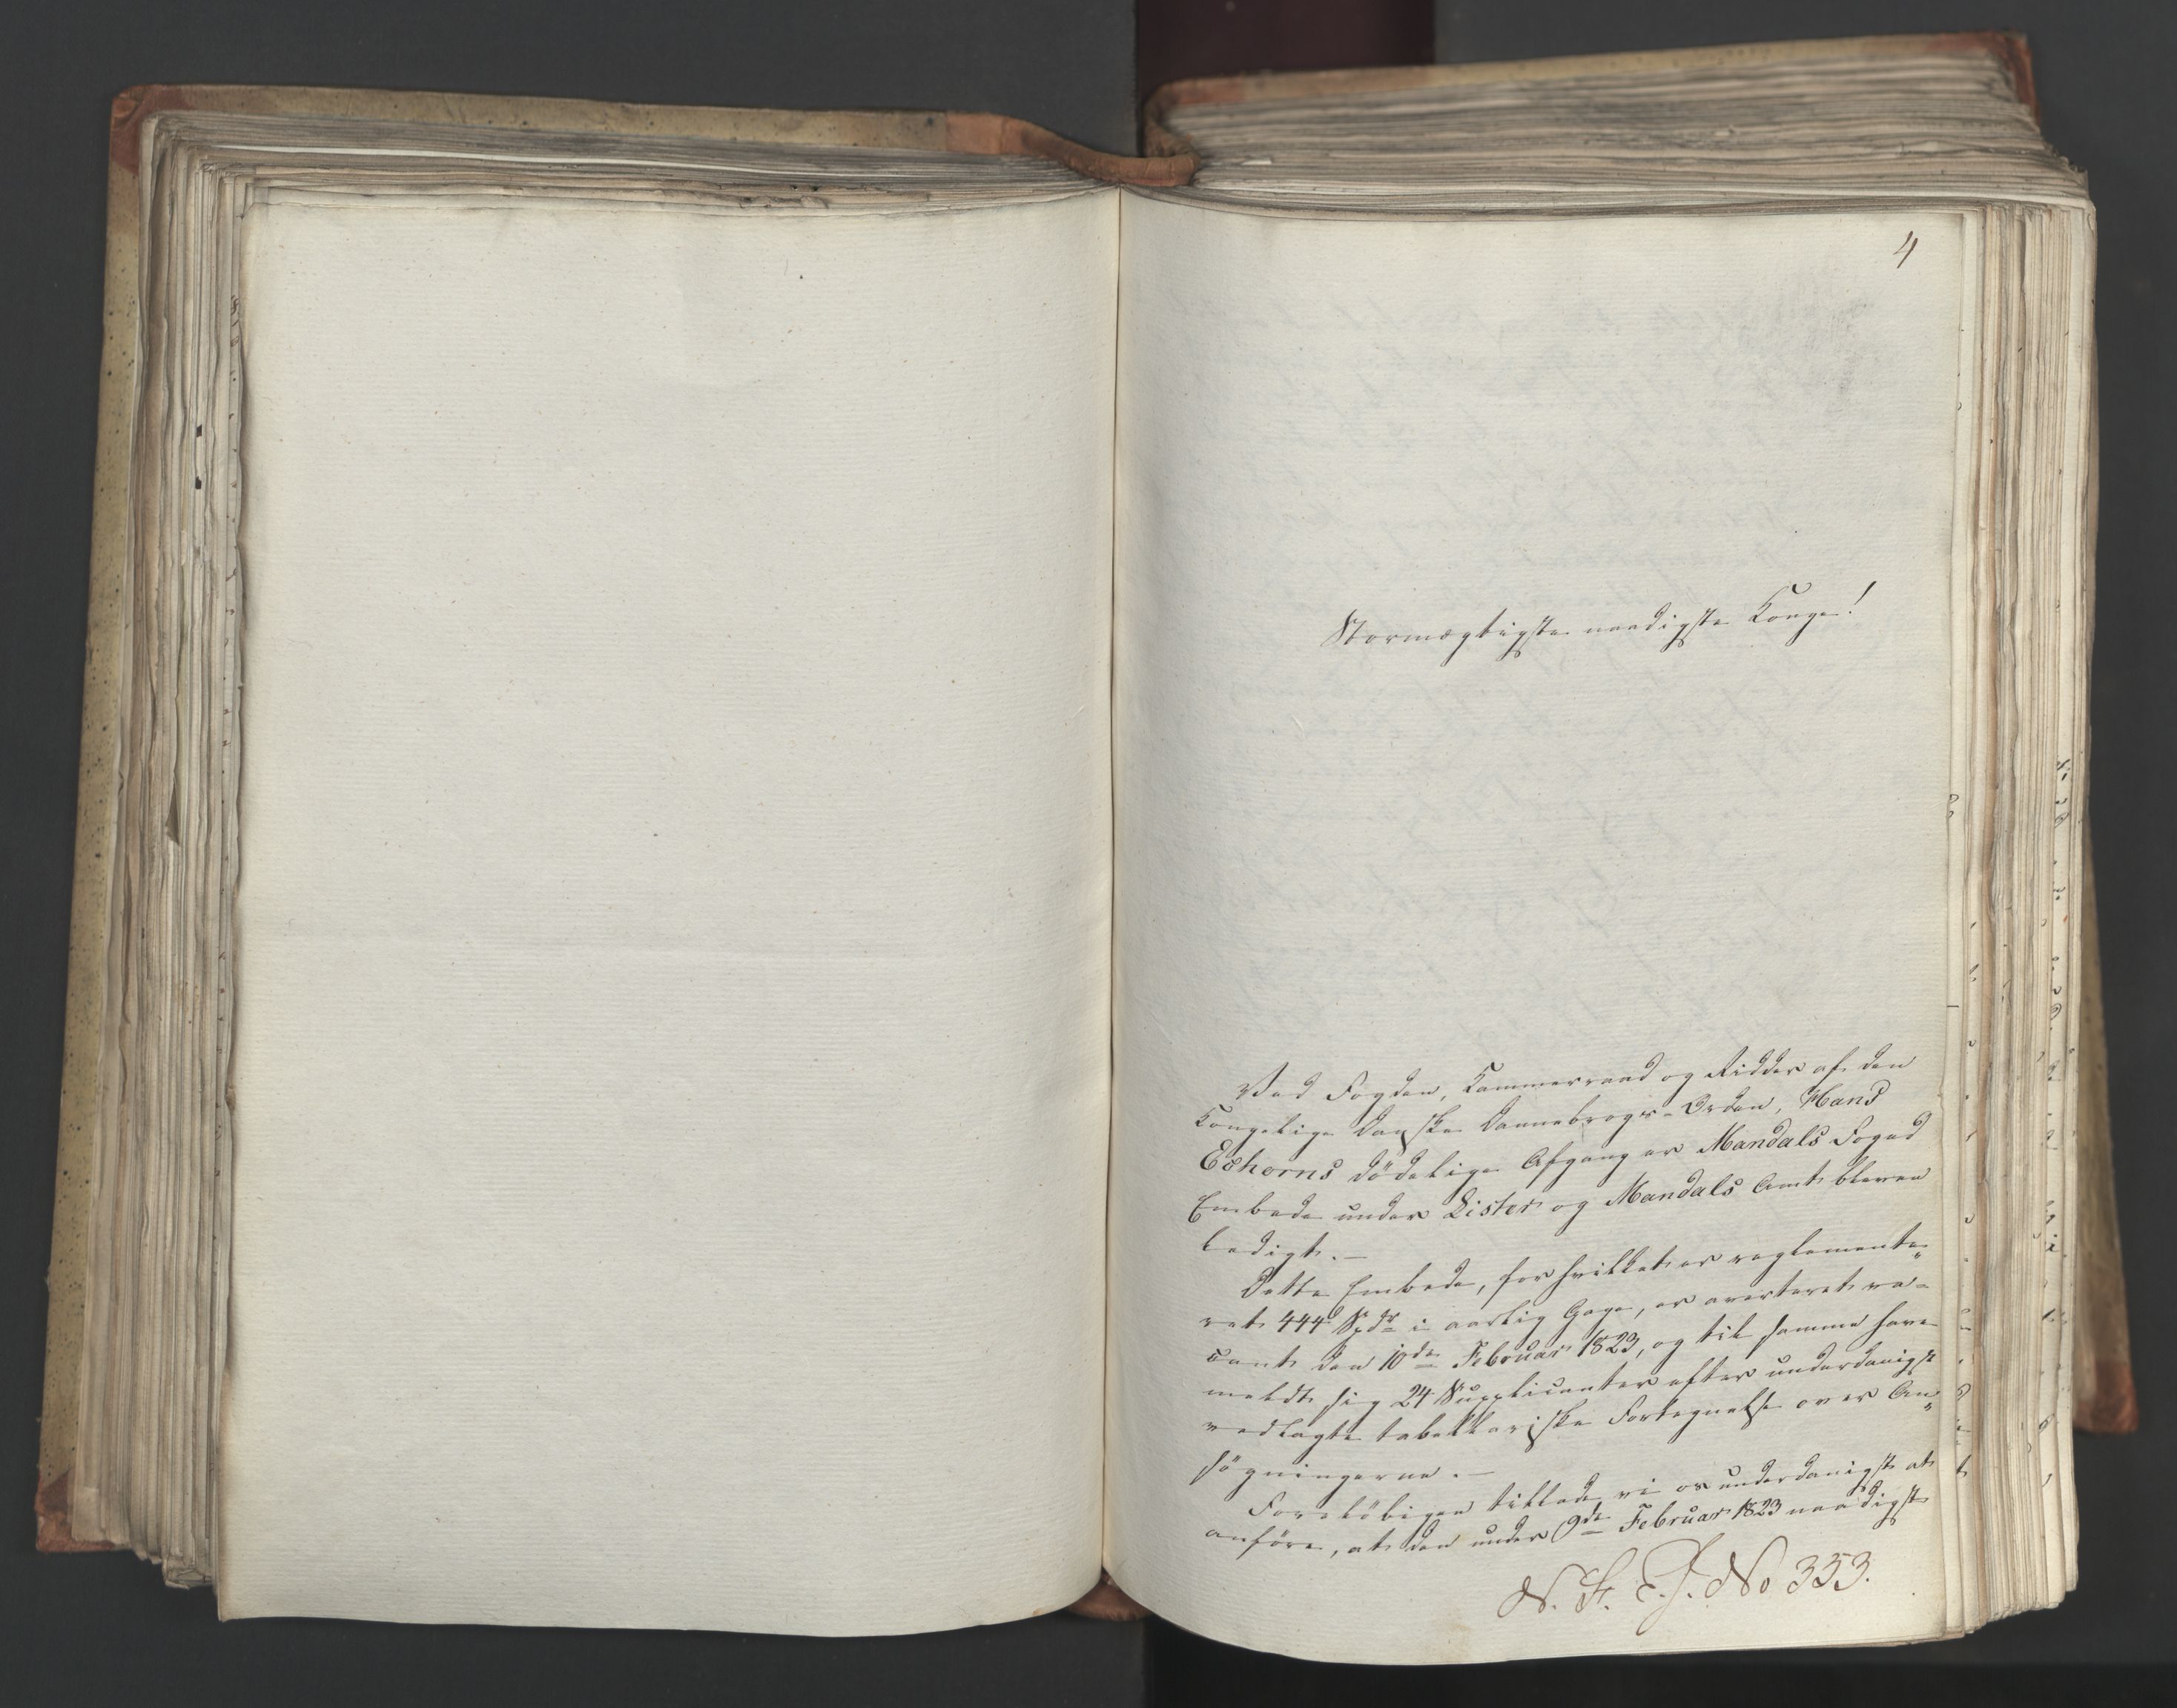 4
Stormægtigste naadigste Konge!
Ved Fogden, Kammerraad og Ridder af den
Kongelige Danske Dannebrogs-Orden, Hans
Eshorns dödelige Afgang er Mandals Foged
Embede under Lister og Mandals Amt bleven
ledigt. —
Dette Embede, for hvilket er reglemente„
ret 444 Spdr i aarlig Gage, er averteret va-
cant den 10de Februar 1823, og til samme have
meldt sig 24 Supplicanter efter underdanigst
vedlagte tabellariske Fortegnelse over An„
sögningerne. —
Forelöbigen tillade vi os underdanigst at
anföre, at den under 9de Februar 1823 naadigst
N. F. E. J. No 353.